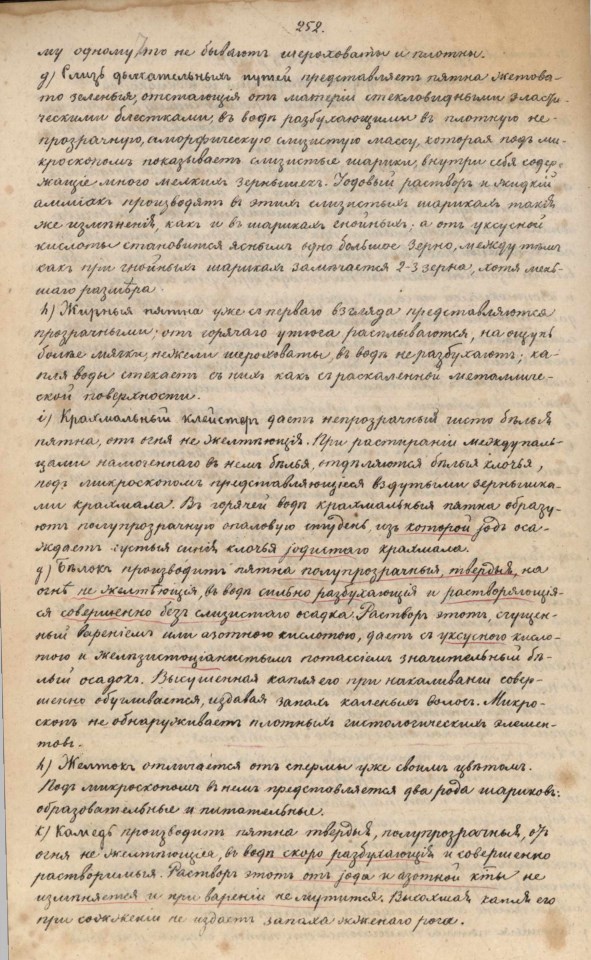 252.
му одному, то не бываютъ шероховаты и плотны.
g) Слизь дыхательныхъ путей представляетъ пятна желтова-
то зеленыя, отстающія отъ матеріи стекловидными эласти-
ческими блестками, въ водѣ разбухающими въ плотную не-
прозрачную, аморфическую слизистую массу, которая подъ ми-
кроскопомъ показываетъ слизистые шарики, внутри себя содер-
жащіе много мелкихъ зернышекъ. Іодовый растворъ и жидкій
амміакъ производятъ въ этихъ слизистыхъ шарикахъ такія
же измѣненія, какъ и въ шарикахъ гнойныхъ; а отъ уксусной
кислоты становится яснымъ одно большое зерно, между тѣмъ
какъ при гнойныхъ шарикахъ замѣчается 2-3 зерна, хотя мень-
шаго размѣра.
h) Жирныя пятна уже съ перваго взгляда представляются
прозрачными; отъ горячаго утюга расплываются, на ощупь
болѣе мягки, нежели шероховаты, въ водѣ не разбухаютъ; ка-
пля воды стекаетъ съ нихъ какъ съ раскаленной металличе-
ской поверхности.
i) Крахмальный клейстеръ даетъ непрозрачныя чисто бѣлыя
пятна, отъ огня не желтѣющія. При растираніи между паль-
цами намоченнаго въ немъ бѣлья, отдѣляются бѣлыя клочья,
подъ микроскопомъ представляющіеся вздутыми зернышка-
ми крахмала. Въ горячей водѣ крахмальныя пятна образу-
ютъ полупрозрачную опаловую студень, изъ которой іодъ оса-
ждаетъ густыя синія клочья іодистаго крахмала.
g) Бѣлокъ производитъ пятна полупрозрачныя, твердыя, на
огнѣ не желтѣющія, въ водѣ сильно разбухающія и растворяющія-
ся совершенно безъ слизистаго осадка. Растворъ этотъ, сгущен-
ный вареніемъ или азотною кислотою, даетъ съ уксусного кисло-
тою и желѣзистоціанистымъ потассіемъ значительный бѣ-
лый осадокъ. Высушенная капля его при накаливаніи совер-
шенно обугливается, издавая запахъ каленыхъ волосъ. Микро-
скопъ не обнаруживаетъ плотныхъ гистологическихъ элемен-
товъ.
h) Желтокъ отличается отъ спермы уже своимъ цвѣтомъ.
Подъ микроскопомъ въ немъ представляется два рода шариковъ:
образовательные и питательные.
k) Камедь производитъ пятна твердыя, полупрозрачныя, отъ
огня не желтѣющія, въ водѣ скоро разбухающія и совершенно
растворимыя. Растворъ этотъ отъ іода и азотной к҃ты не
измѣняется и при вареніи не мутится. Высохшая капля его
при сожженіи не издаетъ запаха жженаго рога.